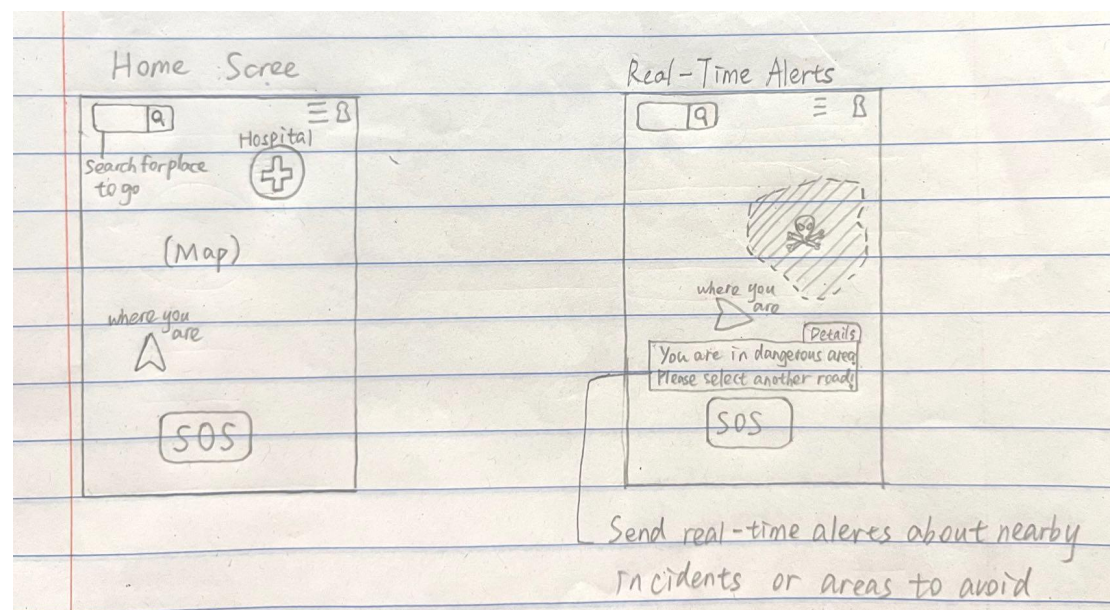 Home Scree
Hospital
Search for place
to go
(Map)
where you
are
SOS
Real-Time Alerts
where you
are
Details
You are in dangerous area
Please select another road!
SOS
Send real-time alerts about nearby
incidents or areas to avoid